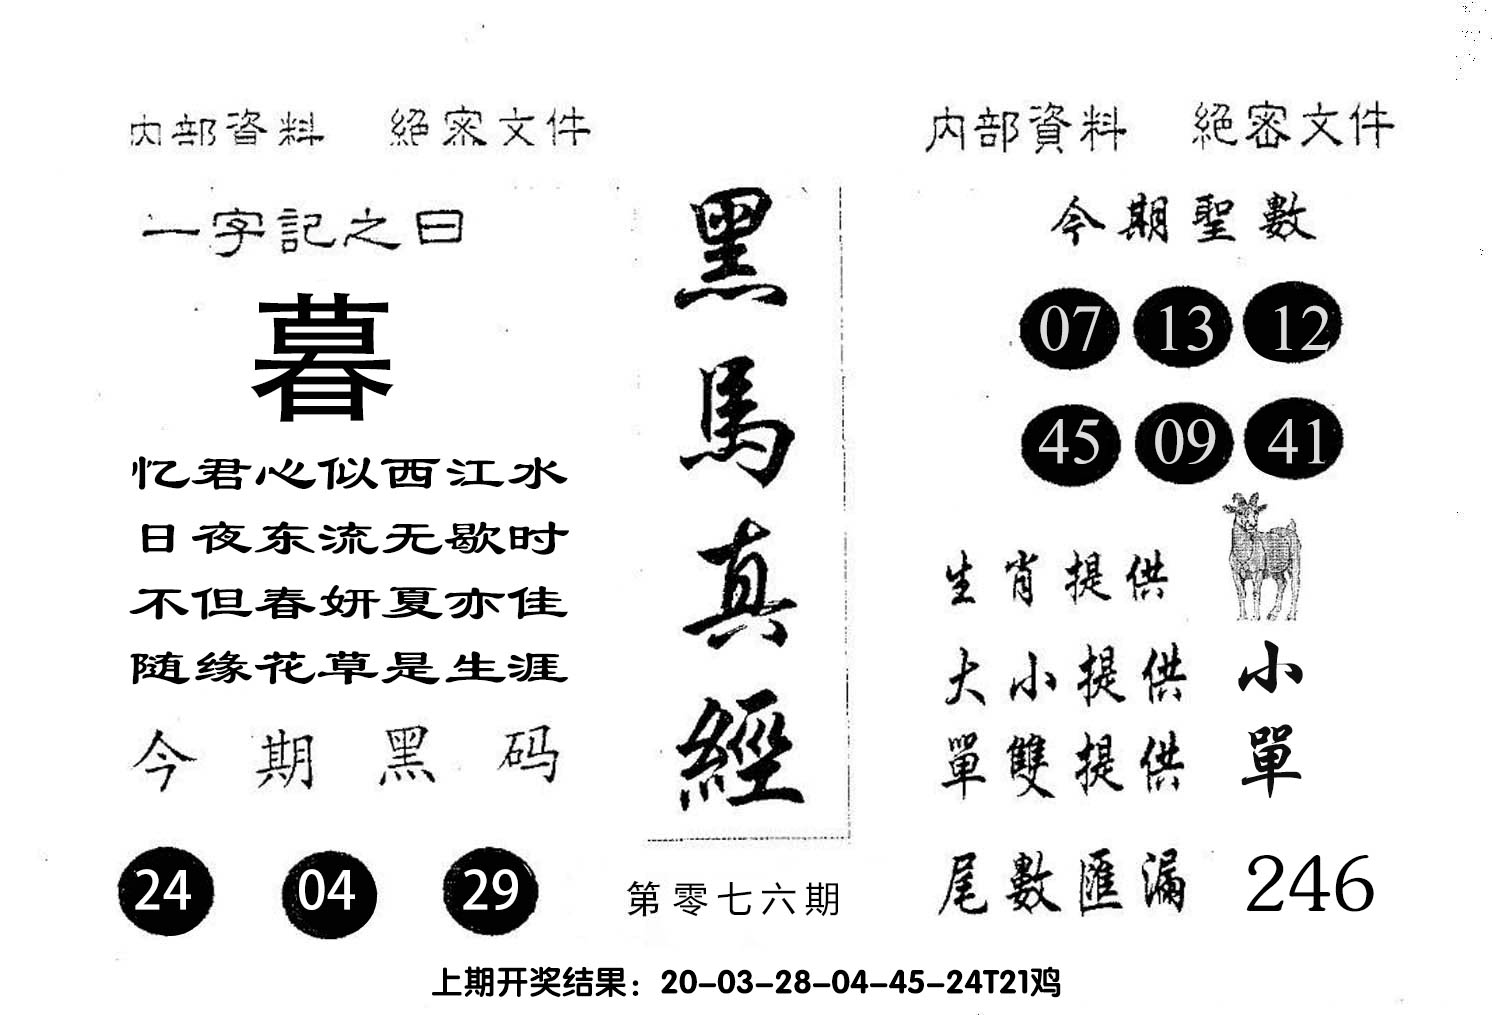 内部資料 絕密文件
一字記之曰
暮
忆君心似西江水
日夜东流无歇时
不但春妍夏亦佳
随缘花草是生涯
今期黑码
24 04 29
黑馬真經
第零七六期
内部資料 絕密文件
今期聖數
07 13 12
45 09 41
生肖提供
大小提供 小
單雙提供 單
尾數匯漏 246
上期开奖结果：20-03-28-04-45-24T21鸡